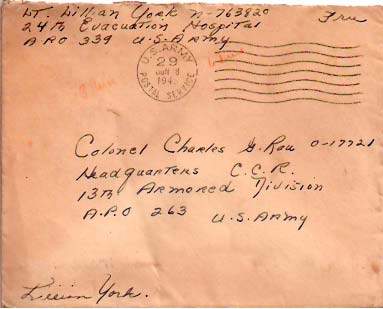 Lt. Lillian York N-763820
Free
24th Evacuation Hospital
A.P.O 339 U.S. Army
U.S. ARMY
29
JUN 18
1945
POSTAL SERVICE
Colonel Charles G. Rau O-17721
Headquarters C.C.R.
13th Armored Division
A.P.O 263 U.S. Army
Lillian York.